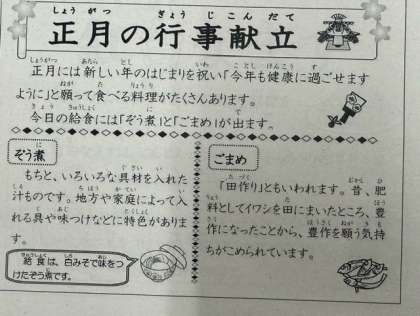 正月の行事献立
正月には新しい年のはじまりを祝い「今年も健康に過ごせます
ように」と願って食べる料理がたくさんあります。
今日の給食には「ぞう煮」と「ごまめ」が出ます。
ぞう煮
もちと、いろいろな具材を入れた
汁ものです。地方や家庭によって入
れる具や味つけなどに特色がありま
す。
給食は、白みそで味をつ
けたぞう煮です。
ごまめ
「田作り」ともいわれます。昔、肥
料としてイワシを田にまいたところ、豊
作になったことから、豊作を願う気持
ちがこめられています。